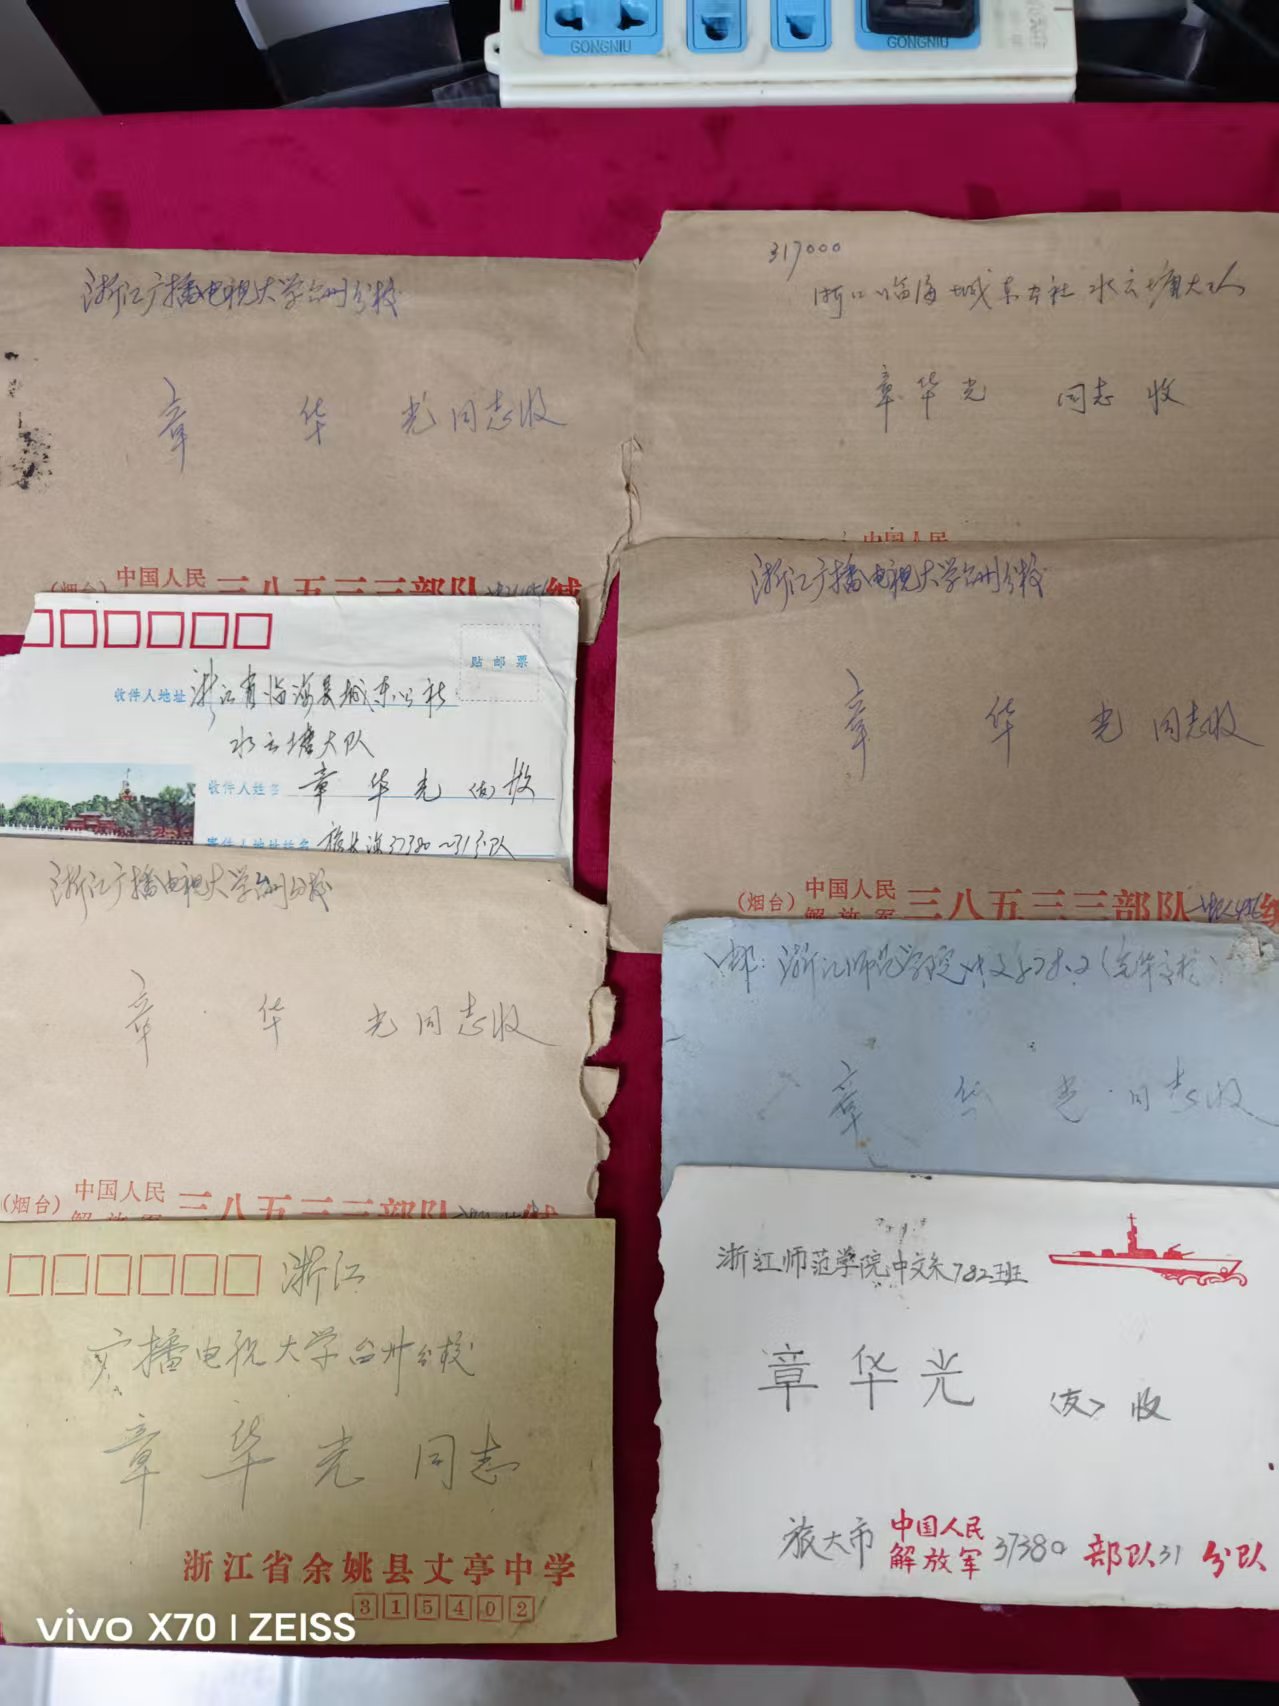 GONGNIU
GONGNIU
浙江广播电视大学台州分校
章华光同志收
(烟台)
中国人民
三八五三三部队
缄
317000
浙江临海城东公社水云塘大队
章华光 同志 收
中国人民
贴邮票
收件人地址 浙江省临海县城东公社
水云塘大队
收件人姓名 章华光(友)收
寄件人地址姓名 旅大市37380~31分队
浙江广播电视大学台州分校
章华光同志收
(烟台)
中国人民
解放军
三八五三三部队
缄
浙江广播电视大学台州分校
章华光同志收
(烟台)
中国人民
解放军
三八五三三部队
缄
浙江师范学院中文系78.2
章华光同志收
浙江
广播电视大学台州分校
章华光同志
浙江省余姚县丈亭中学
315402
浙江师范学院中文系782班
章华光
(友)收
旅大市
中国人民
解放军
37380部队31分队
vivo X70 | ZEISS